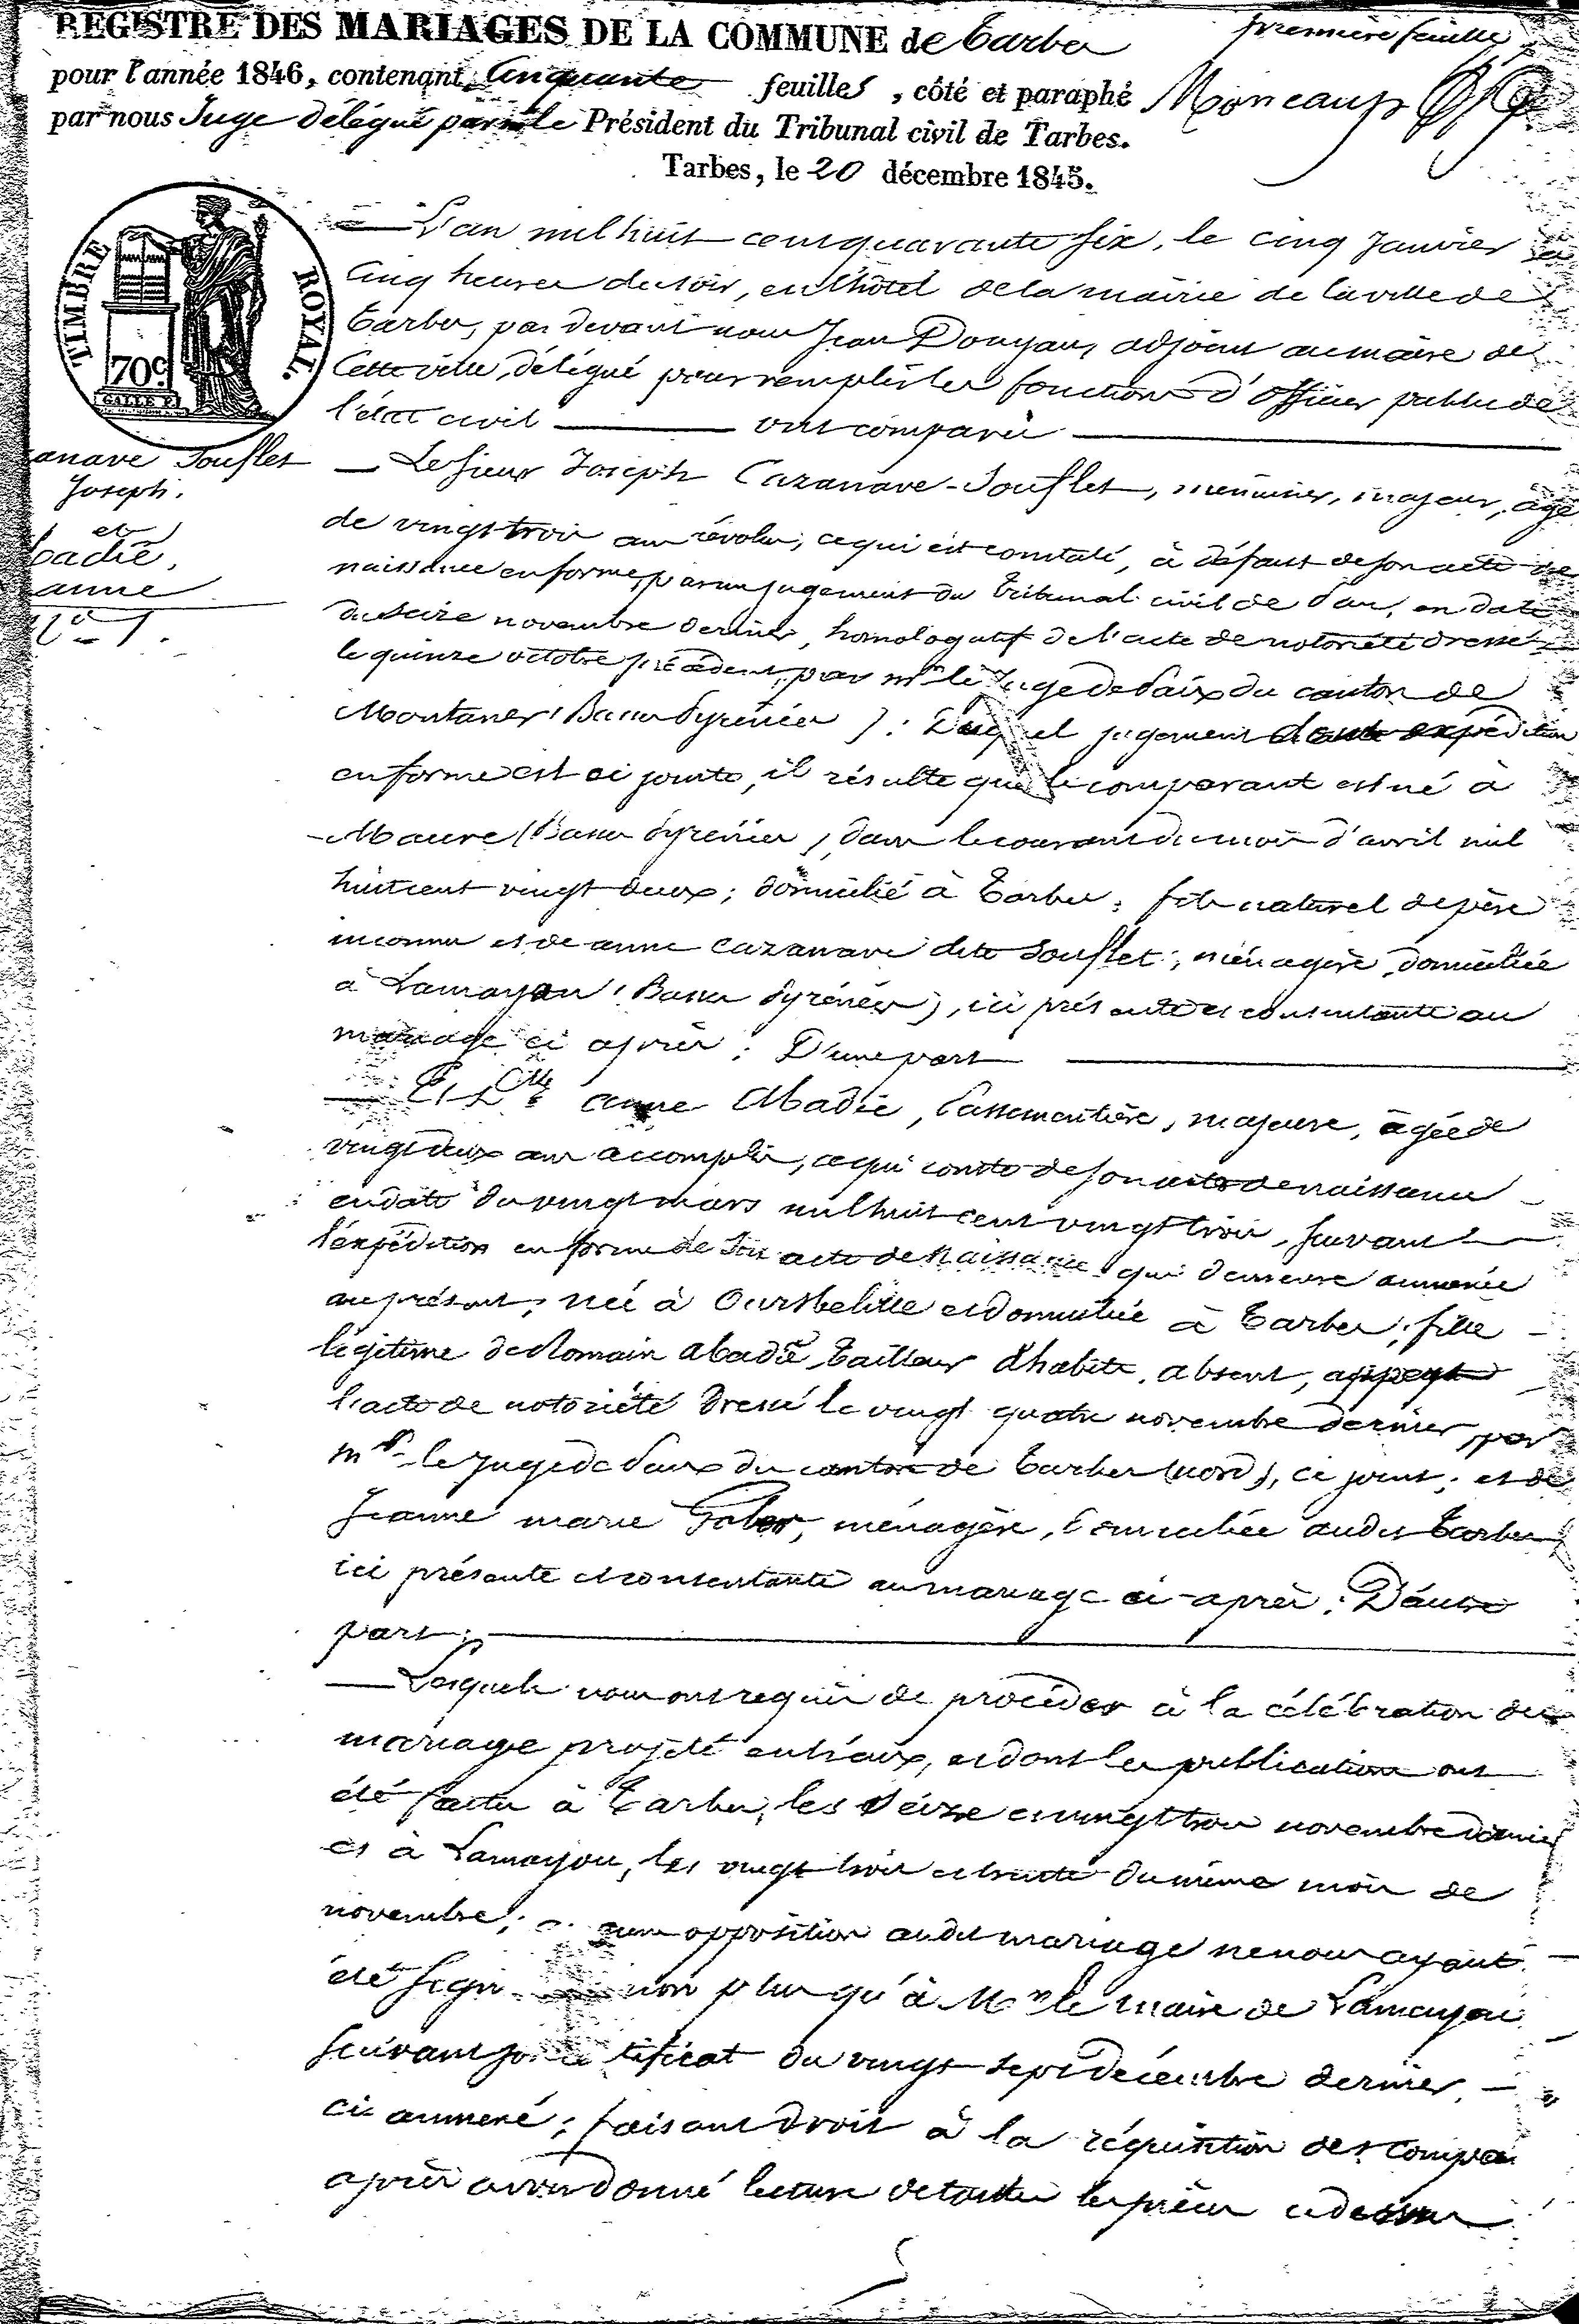 première feuille
REGISTRE DES MARIAGES DE LA COMMUNE de Tarbes
pour l'année 1846, contenant Cinquante feuilles, côté et paraphé
par nous Juge délégué par le Président du Tribunal civil de Tarbes.
Tarbes, le 20 décembre 1845.
TIMBRE ROYAL.
70c
GALLE F.
anave Souflet
Joseph.
et
badie,
anne
N° 1.
— L'an mil huit cent quarante six, le cinq Janvier à
Cinq heures du soir, en l'hôtel de la mairie de la ville de
Tarbes, par devant nous Jean adjoint au maire de
Cette ville, délégué pour remplir les fonctions d'officier public de
l'état civil — ont comparu —
— Le sieur Joseph Cazanave-Souflet, menuisier, majeur, âgé
de vingt trois ans révolus, ce qui est constaté, à défaut de son acte de
naissance en forme, par un jugement du Tribunal civil de Pau, en date
du seize novembre dernier, homologatif de l'acte de notoriété dressé
le quinze octobre précédent, par Mr le Juge de Paix du canton de
Montaner (Basses Pyrénées) : Duquel jugement dont expédition
en forme est ci jointe, il résulte que le comparant est né à
Maure (Basses Pyrénées), dans le courant du mois d'avril mil
huit cent vingt deux; domicilié à Tarbes; fils naturel de père
inconnu et de anne Cazanave dite Souflet, ménagère, domiciliée
à Lamayou (Basses Pyrénées), ici présente et consentante au
mariage ci après; D'une part —
— Et Dlle anne Abadie, Passementière, majeure, âgée de
vingt deux ans accomplis, ce qui conste de son acte de naissance
en date du vingt mars mil huit cent vingt trois, suivant
l'expédition en forme de son acte de naissance qui demeure annexée
au présent; née à Oursbelille et domiciliée à Tarbes; fille
légitime de Romain Abadie, Tailleur d'habits, absent,
l'acte de notoriété dressé le vingt quatre novembre dernier, par
Mr le Juge de Paix du canton de Tarbes (nord), ci joint; et de
Jeanne marie ménagère, domiciliée audit Tarbes
ici présente et consentante au mariage ci-après; D'autre
part; —
— Lesquels nous ont requis de procéder à la célébration du
mariage projeté entr'eux, et dont les publications ont
été faites à Tarbes, les seize et vingt trois novembre dernier
et à Lamayou, les vingt trois et trente du même mois de
novembre; aucune opposition audit mariage ne nous ayant
été signifiée non plus qu'à Mr le maire de Lamayou
suivant son certificat du vingt sept décembre dernier, —
ci annexé; faisant droit à la réquisition des compa
après avoir donné lecture de toutes les pièces ci dessus